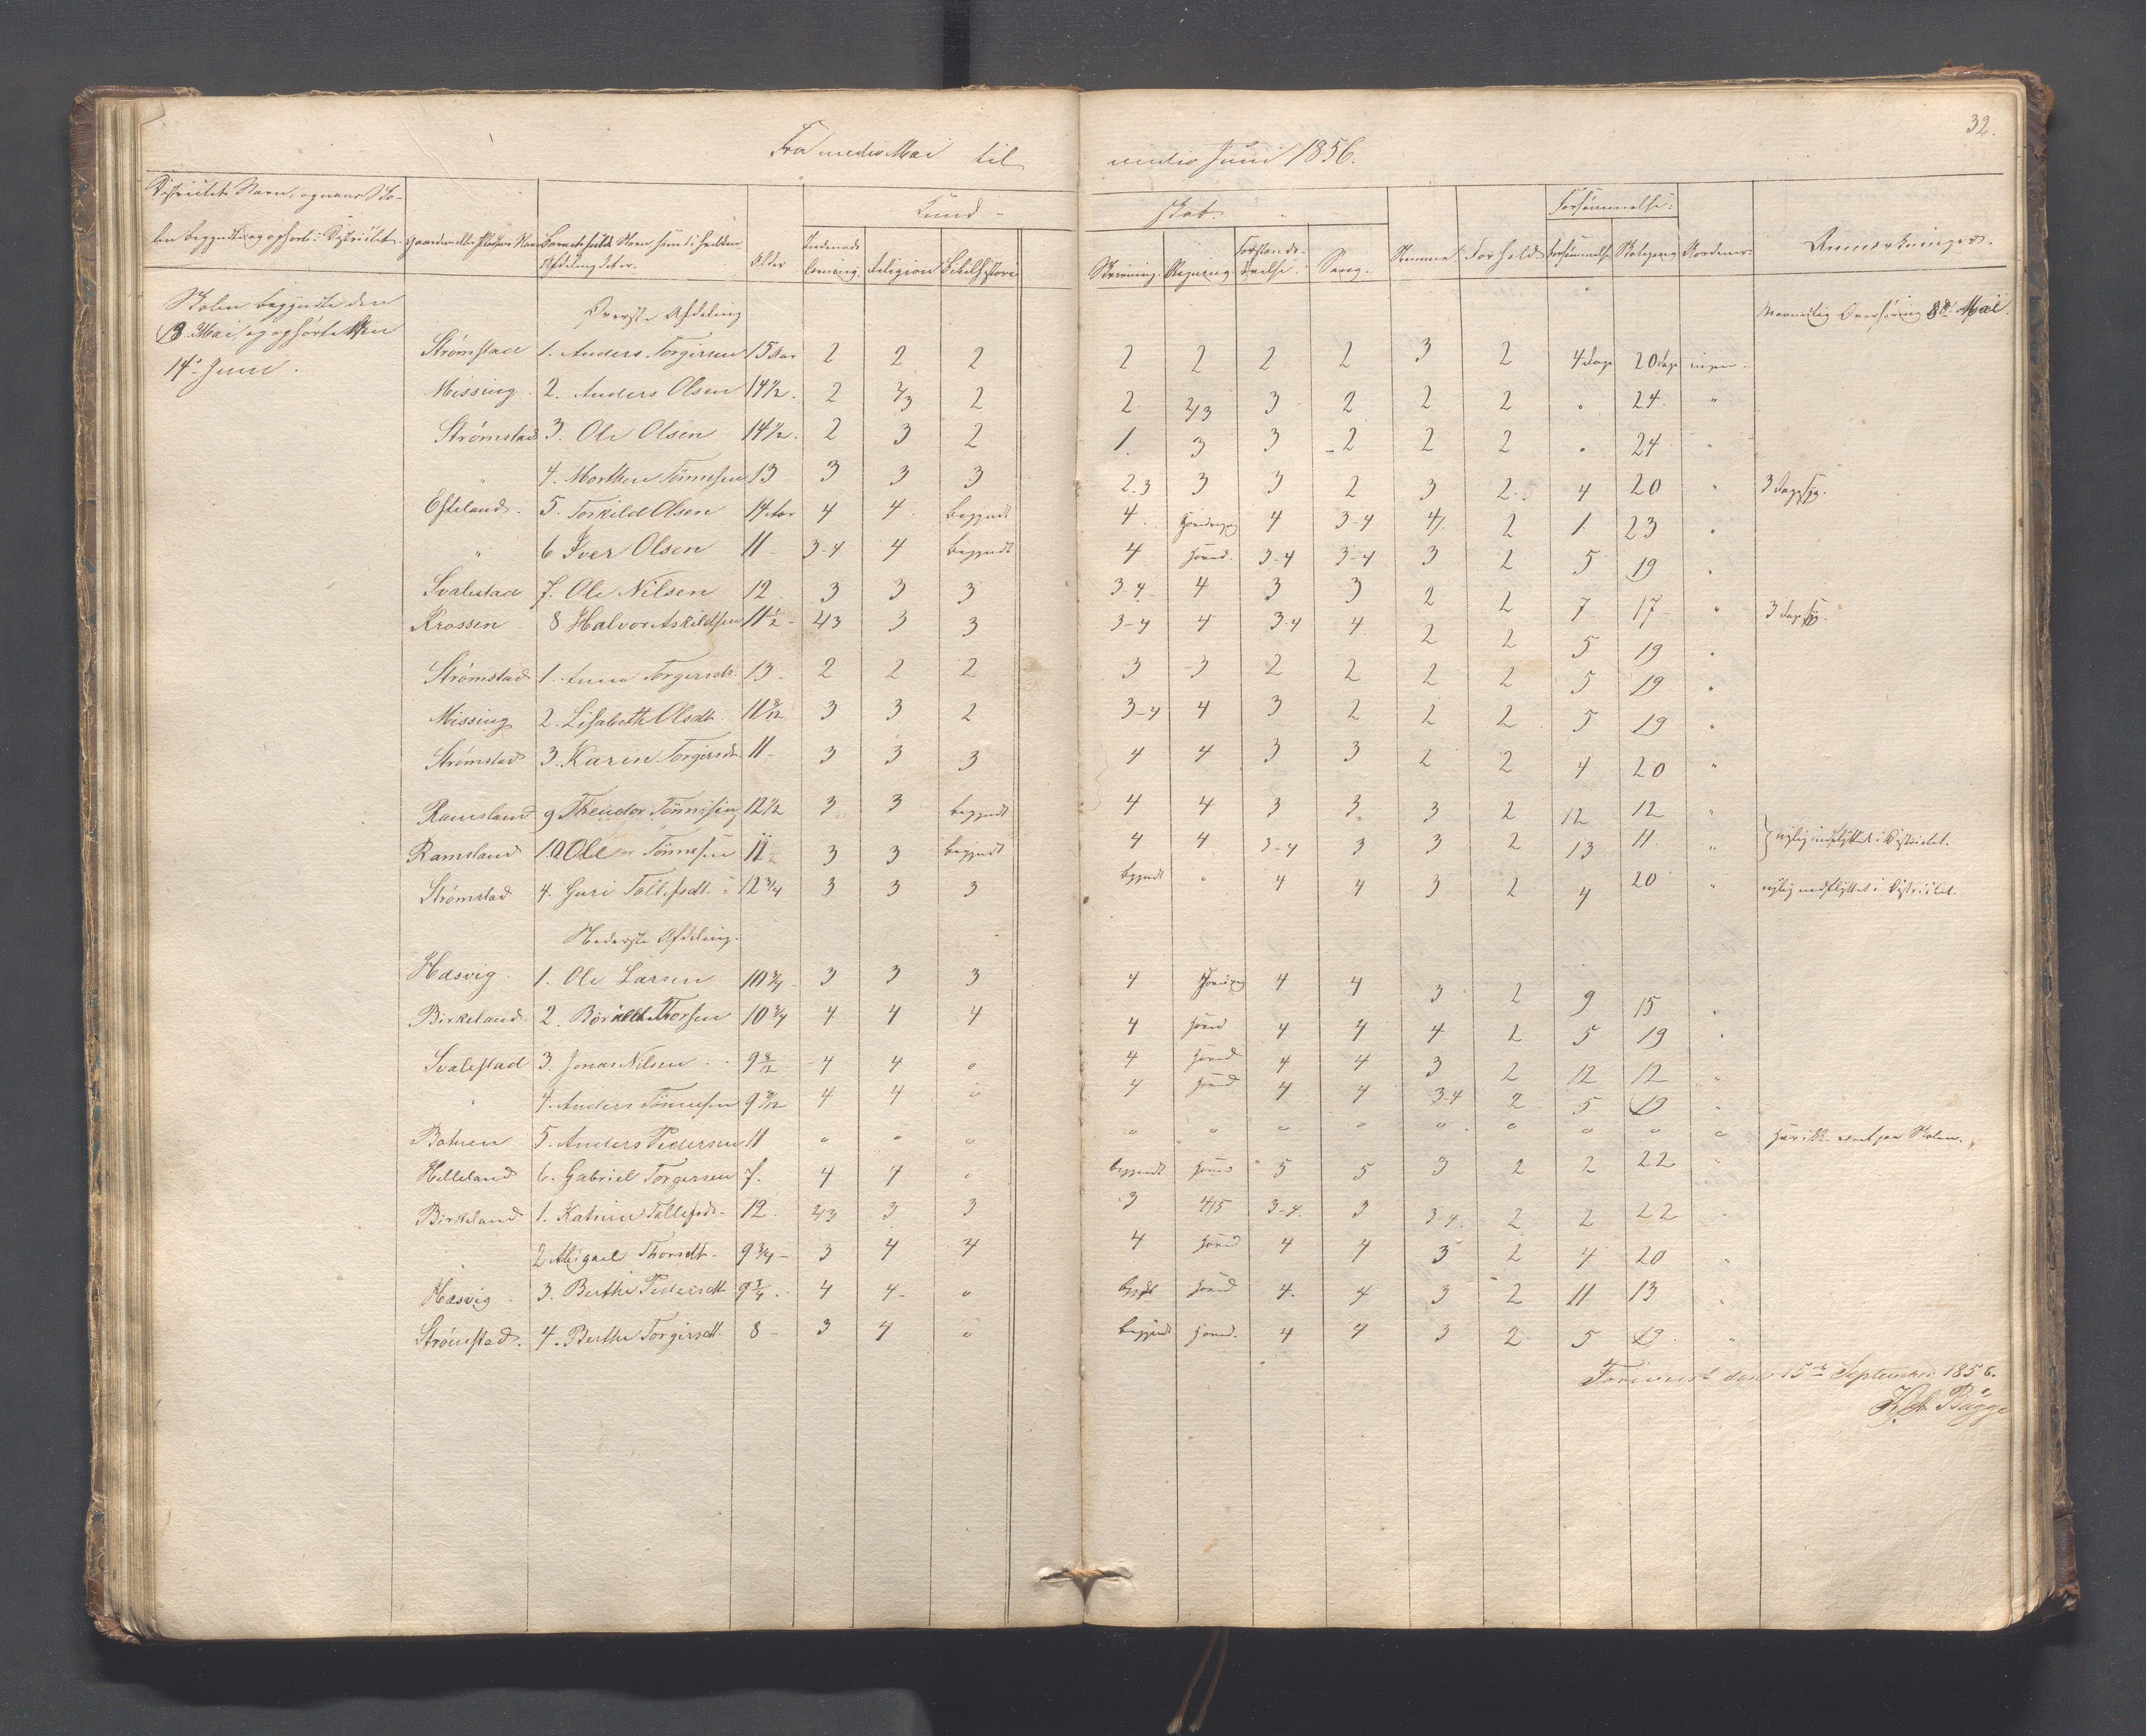 32.
Fra medio Mai til medio Juni 1856.
Districtets Navn, og naar Sko-
len begyndte og ophørte i Districtet.
Barnets fulde Navn samt i hvilken
Afdeling det er.
Alder
Kund-
skab.
Indenads
Læsning. Religion Bibelhistorie
Skrivning. Regning. Forstands-
øvelse. Sang. Stemme. Forhold
Forsømmelse:
Forsømmelse Skolegang Anmærkninger.
Skolen begyndte den
13 Mai og ophørte den
14 Juni.
Øverste Afdeling
Maanedlig Overhøring 8de Mai.
Strømstad 1. Anders Torgersen 15 Aar 2 2 2 2 2 2 2 3 2 4 Dage 20 Dage ingen
Missing 2. Anders Olsen 14 1/2 2 2/3 2 2 2/3 3 2 2 2 " 24 "
Strømstad 3. Ole Olsen 14 1/2 2 3 2 1 3 3 2 2 2 " 24 "
" 4. Morthen Tønnesen 13 3 3 3 2.3 3 3 2 3 2 4 20 " 3 Dage syg.
Efteland 5. Torkild Olsen 14 Aar 4 4 begyndt 4 4 3-4 4 2 1 23 "
" 6 Iver Olsen 11 3-4 4 begyndt 4 3-4 3-4 3 2 5 19 "
Svalestad 7. Ole Nilsen 12 3 3 3 3-4 4 3 3 2 2 7 17 " 3 Dage syg.
Krossen 8 Halvor Askildsen 11 1/2 2/3 3 3 3-4 4 3-4 4 2 2 5 19 "
Strømstad 1. Anna Torgersdt. 13 2 2 2 3 3 2 2 2 2 5 19 "
Missing 2. Lisabeth Olsdt. 11 3 3 2 3-4 4 3 2 2 2 5 19 "
Strømstad 3. Karin Torgersdt. 11 3 3 3 4 4 3 3 2 2 4 20 "
Ramsland 9 Theodor Tønnesen 12 1/2 3 3 begyndt 4 4 3 3 3 2 12 12 "
Ramsland 10 Ole Tønnesen 11 3 3 begyndt 4 4 3-4 3 3 2 13 11 " nylig indflyttet i Districtet.
Strømstad 4. Guri Tollefsdt. 12 3/4 3 3 3 begyndt " 4 4 3 2 4 20 " nylig indflyttet i Districtet.
Nederste Afdeling.
Hæsvig 1. Ole Larsen 10 3/4 3 3 3 4 4 4 3 2 9 15 "
Birkeland 2. Thorsen 10 3/4 4 4 4 4 4 4 4 2 5 19 "
Svalestad 3. Jonas Nilsen 9 8/12 4 4 o 4 4 4 3 2 12 12 "
" 4. Anders Tønnesen 9 4 4 o 4 4 4 3-4 2 5 19 "
Botnen 5. Anders Pedersen 11 o o o o o o o o o o o o har ikke været paa Skolen.
Helleland 6. Gabriel Torgersen 7. 4 4 o begyndt 5 5 3 2 2 22 "
Birkeland 1. Katrine Tollefsdt. 12 2/3 3 3 3 4/5 3-4 3 3-4 2 2 22 "
" 2 Abigael Thorsdt. 9 3/4 3 4 4 4 4 4 3 2 4 20 "
Hæsvig 3. Berthe Pedersdt. 9 3/4 4 4 o 4 4 3 2 11 13 "
Strømstad. 4. Berthe Torgersdt. 8 3 4 o begyndt 4 4 3 2 5 19 "
Foreviist den 15de September 1856.
Bugge